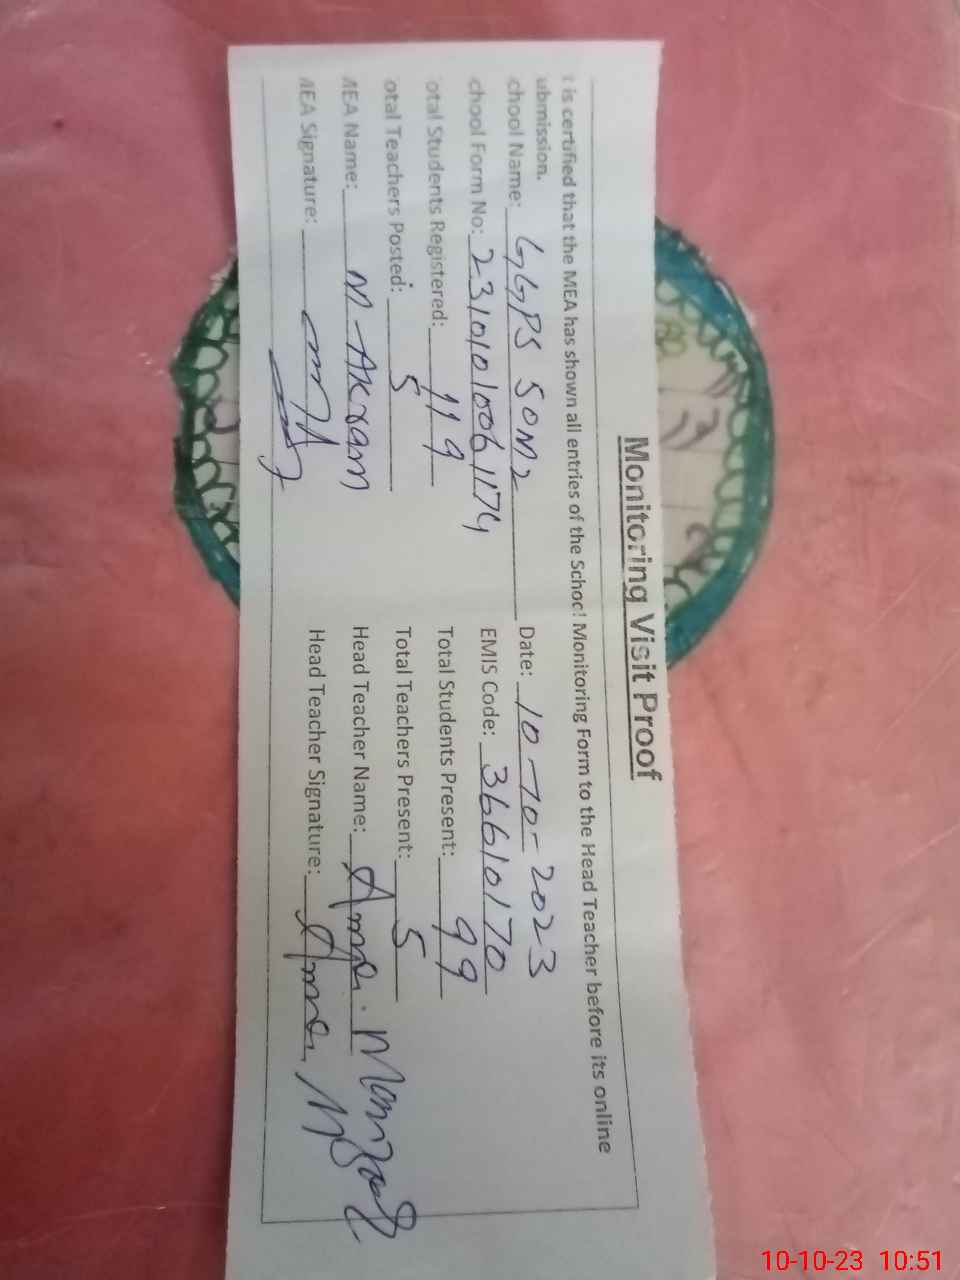 Monitoring Visit Proof
t is certified that the MEA has shown all entries of the School Monitoring Form to the Head Teacher before its online
ubmission.
chool Name: GGPS 50M2 Date: 10-10-2023
chool Form No: 23101010061174 EMIS Code: 36610170
otal Students Registered: 119 Total Students Present: 99
otal Teachers Posted: 5 Total Teachers Present: 5
MEA Name: M-Akram Head Teacher Name:
MEA Signature: Head Teacher Signature:
10-10-23 10:51